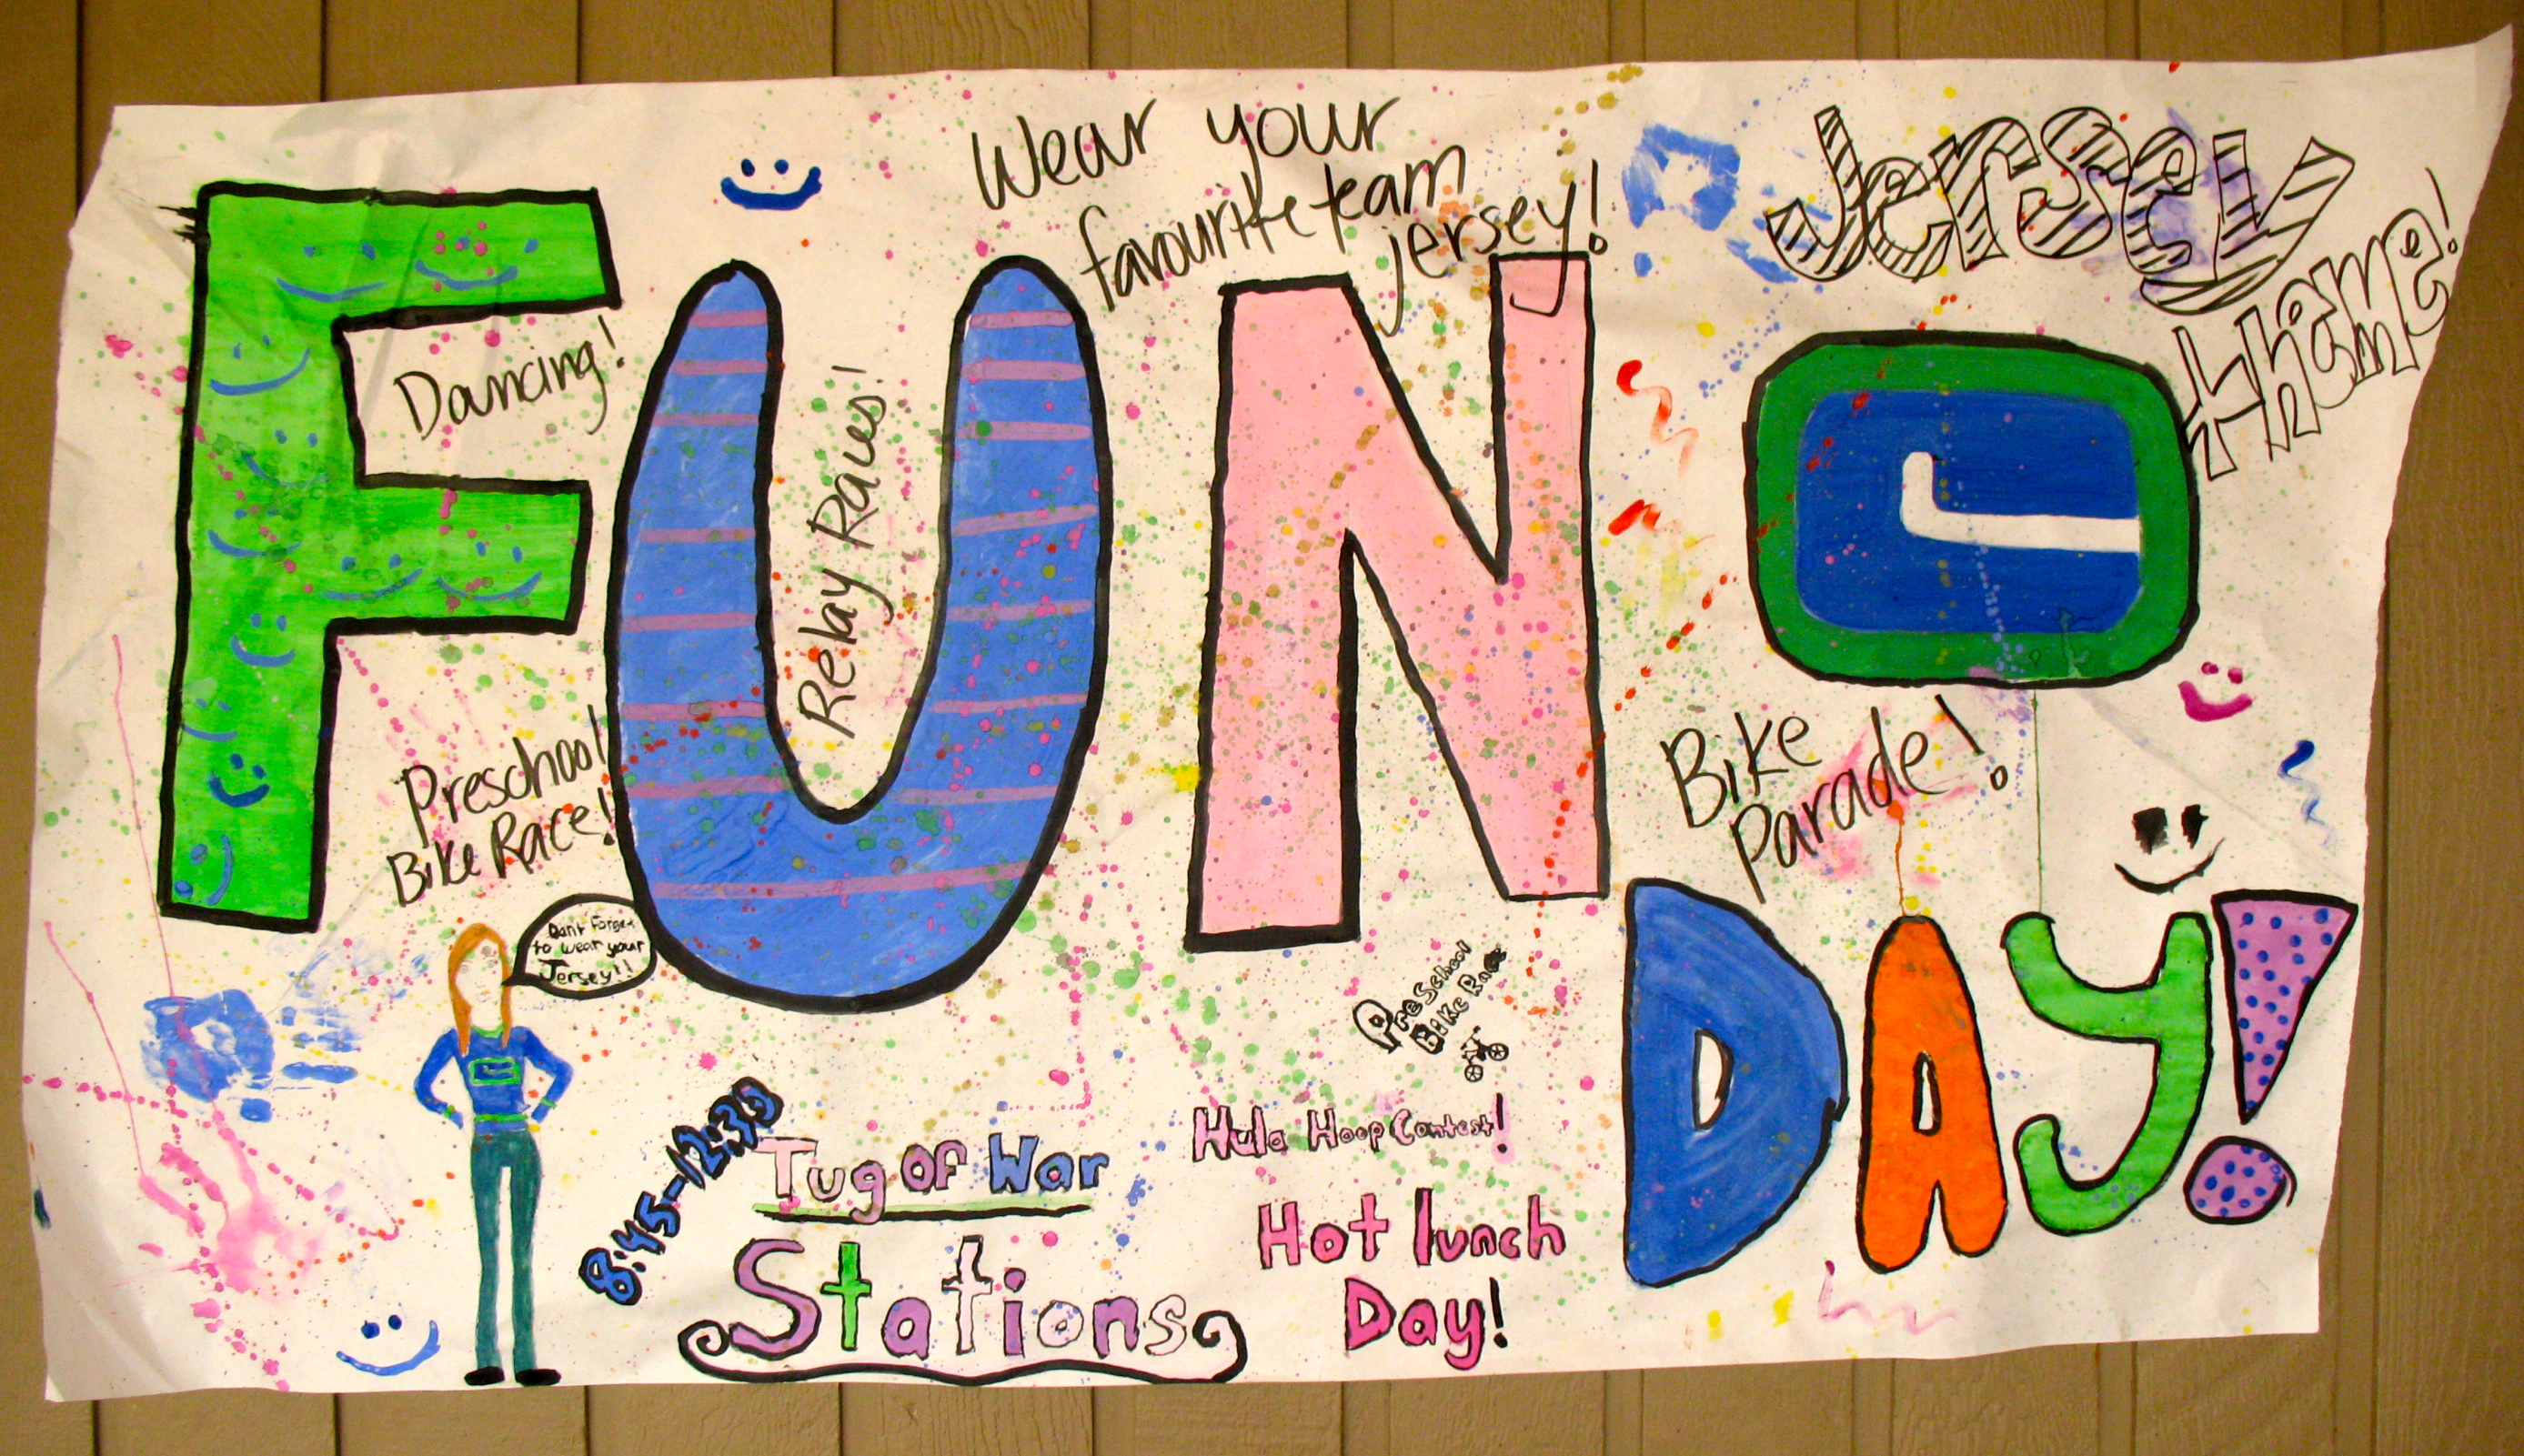 Wear your
favourite team
jersey!
Jersey
theme!
FUN
Dancing!
Relay Races!
Preschool
Bike Race!
Bike
Parade!
Don't Forget
to wear your
Jersey!!
DAY!
Preschool
Bike Race
8:45-12:30
Tug of War
Stations
Hula Hoop Contest!
Hot lunch
Day!